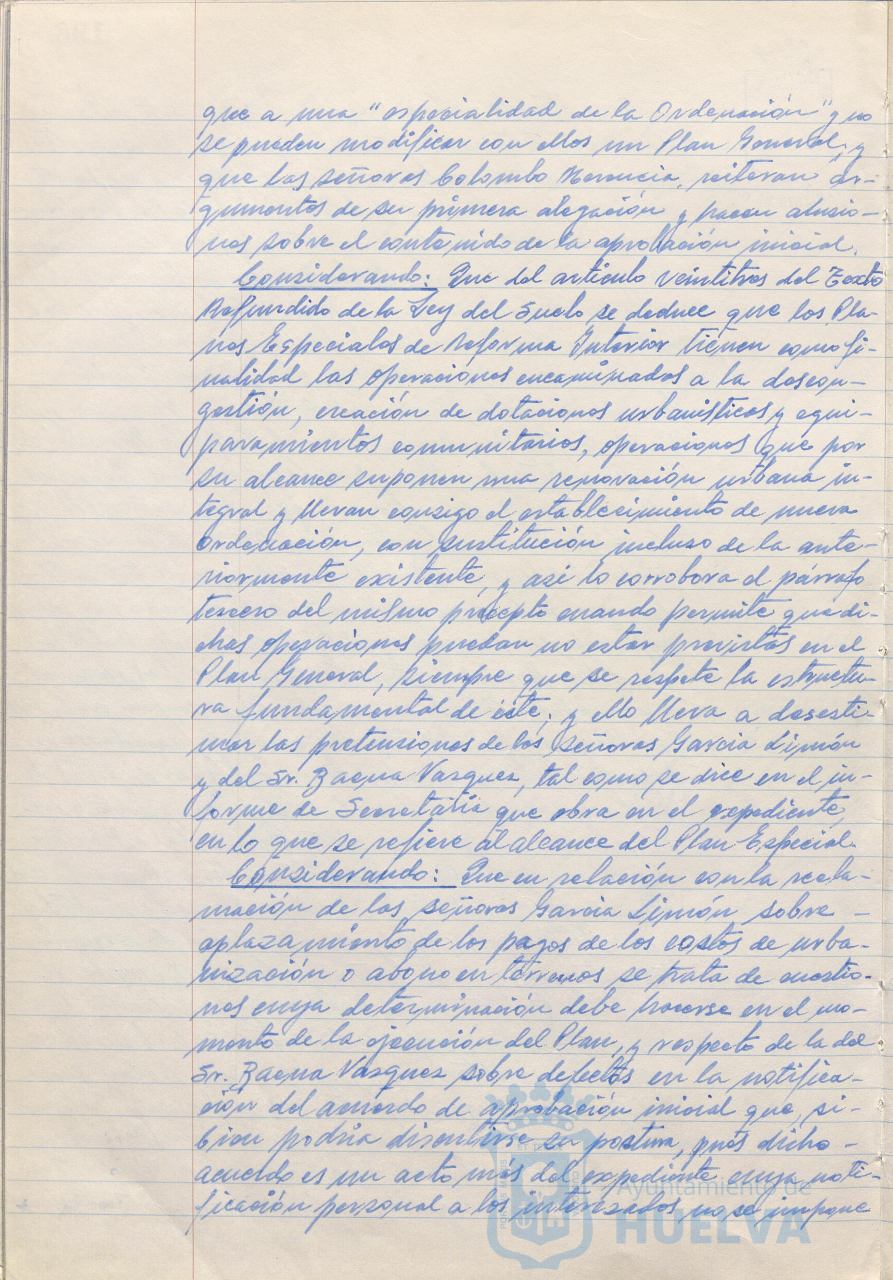 que a una "especialidad de la Ordenación" y no
se pueden modificar con ellos un Plan General; y
que las señoras Colombo Herencia, reiteran ar-
gumentos de su primera alegación y hacen alusio-
nes sobre el contenido de la aprobación inicial.
Considerando: Que del artículo veintitres del Texto
Refundido de la Ley del Suelo se deduce que los Pla-
nes Especiales de Reforma Interior tienen como fi-
nalidad las operaciones encaminadas a la descon-
gestión, creación de dotaciones urbanísticas y equi-
paramientos comunitarios, operaciones que por
su alcance suponen una renovación urbana in-
tegral y llevan consigo el establecimiento de nueva
Ordenación, con sustitución incluso de la ante-
riormente existente, y así lo corrobora el párrafo
tercero del mismo precepto cuando permite que di-
chas operaciones puedan no estar previstas en el
Plan General, siempre que se respete la estructu-
ra fundamental de éste; y ello lleva a desesti-
mar las pretensiones de los señores García Limón
y del Sr. Baena Vazquez, tal como se dice en el in-
forme de Secretaría que obra en el expediente,
en lo que se refiere al alcance del Plan Especial.
Considerando: Que en relación con la recla-
mación de los señores García Limón sobre -
aplazamiento de los pagos de los costos de urba-
nización o abono en terrenos se trata de cuestio-
nes cuya determinación debe hacerse en el mo-
mento de la ejecución del Plan, y respecto de la del
Sr. Baena Vasquez sobre defectos en la notifica-
ción del acuerdo de aprobación inicial que, si-
bien podría discutirse su postura, pues dicho -
acuerdo es un acto más del expediente cuya noti-
ficación personal a los interesados no se impone
Ayuntamiento de
HUELVA